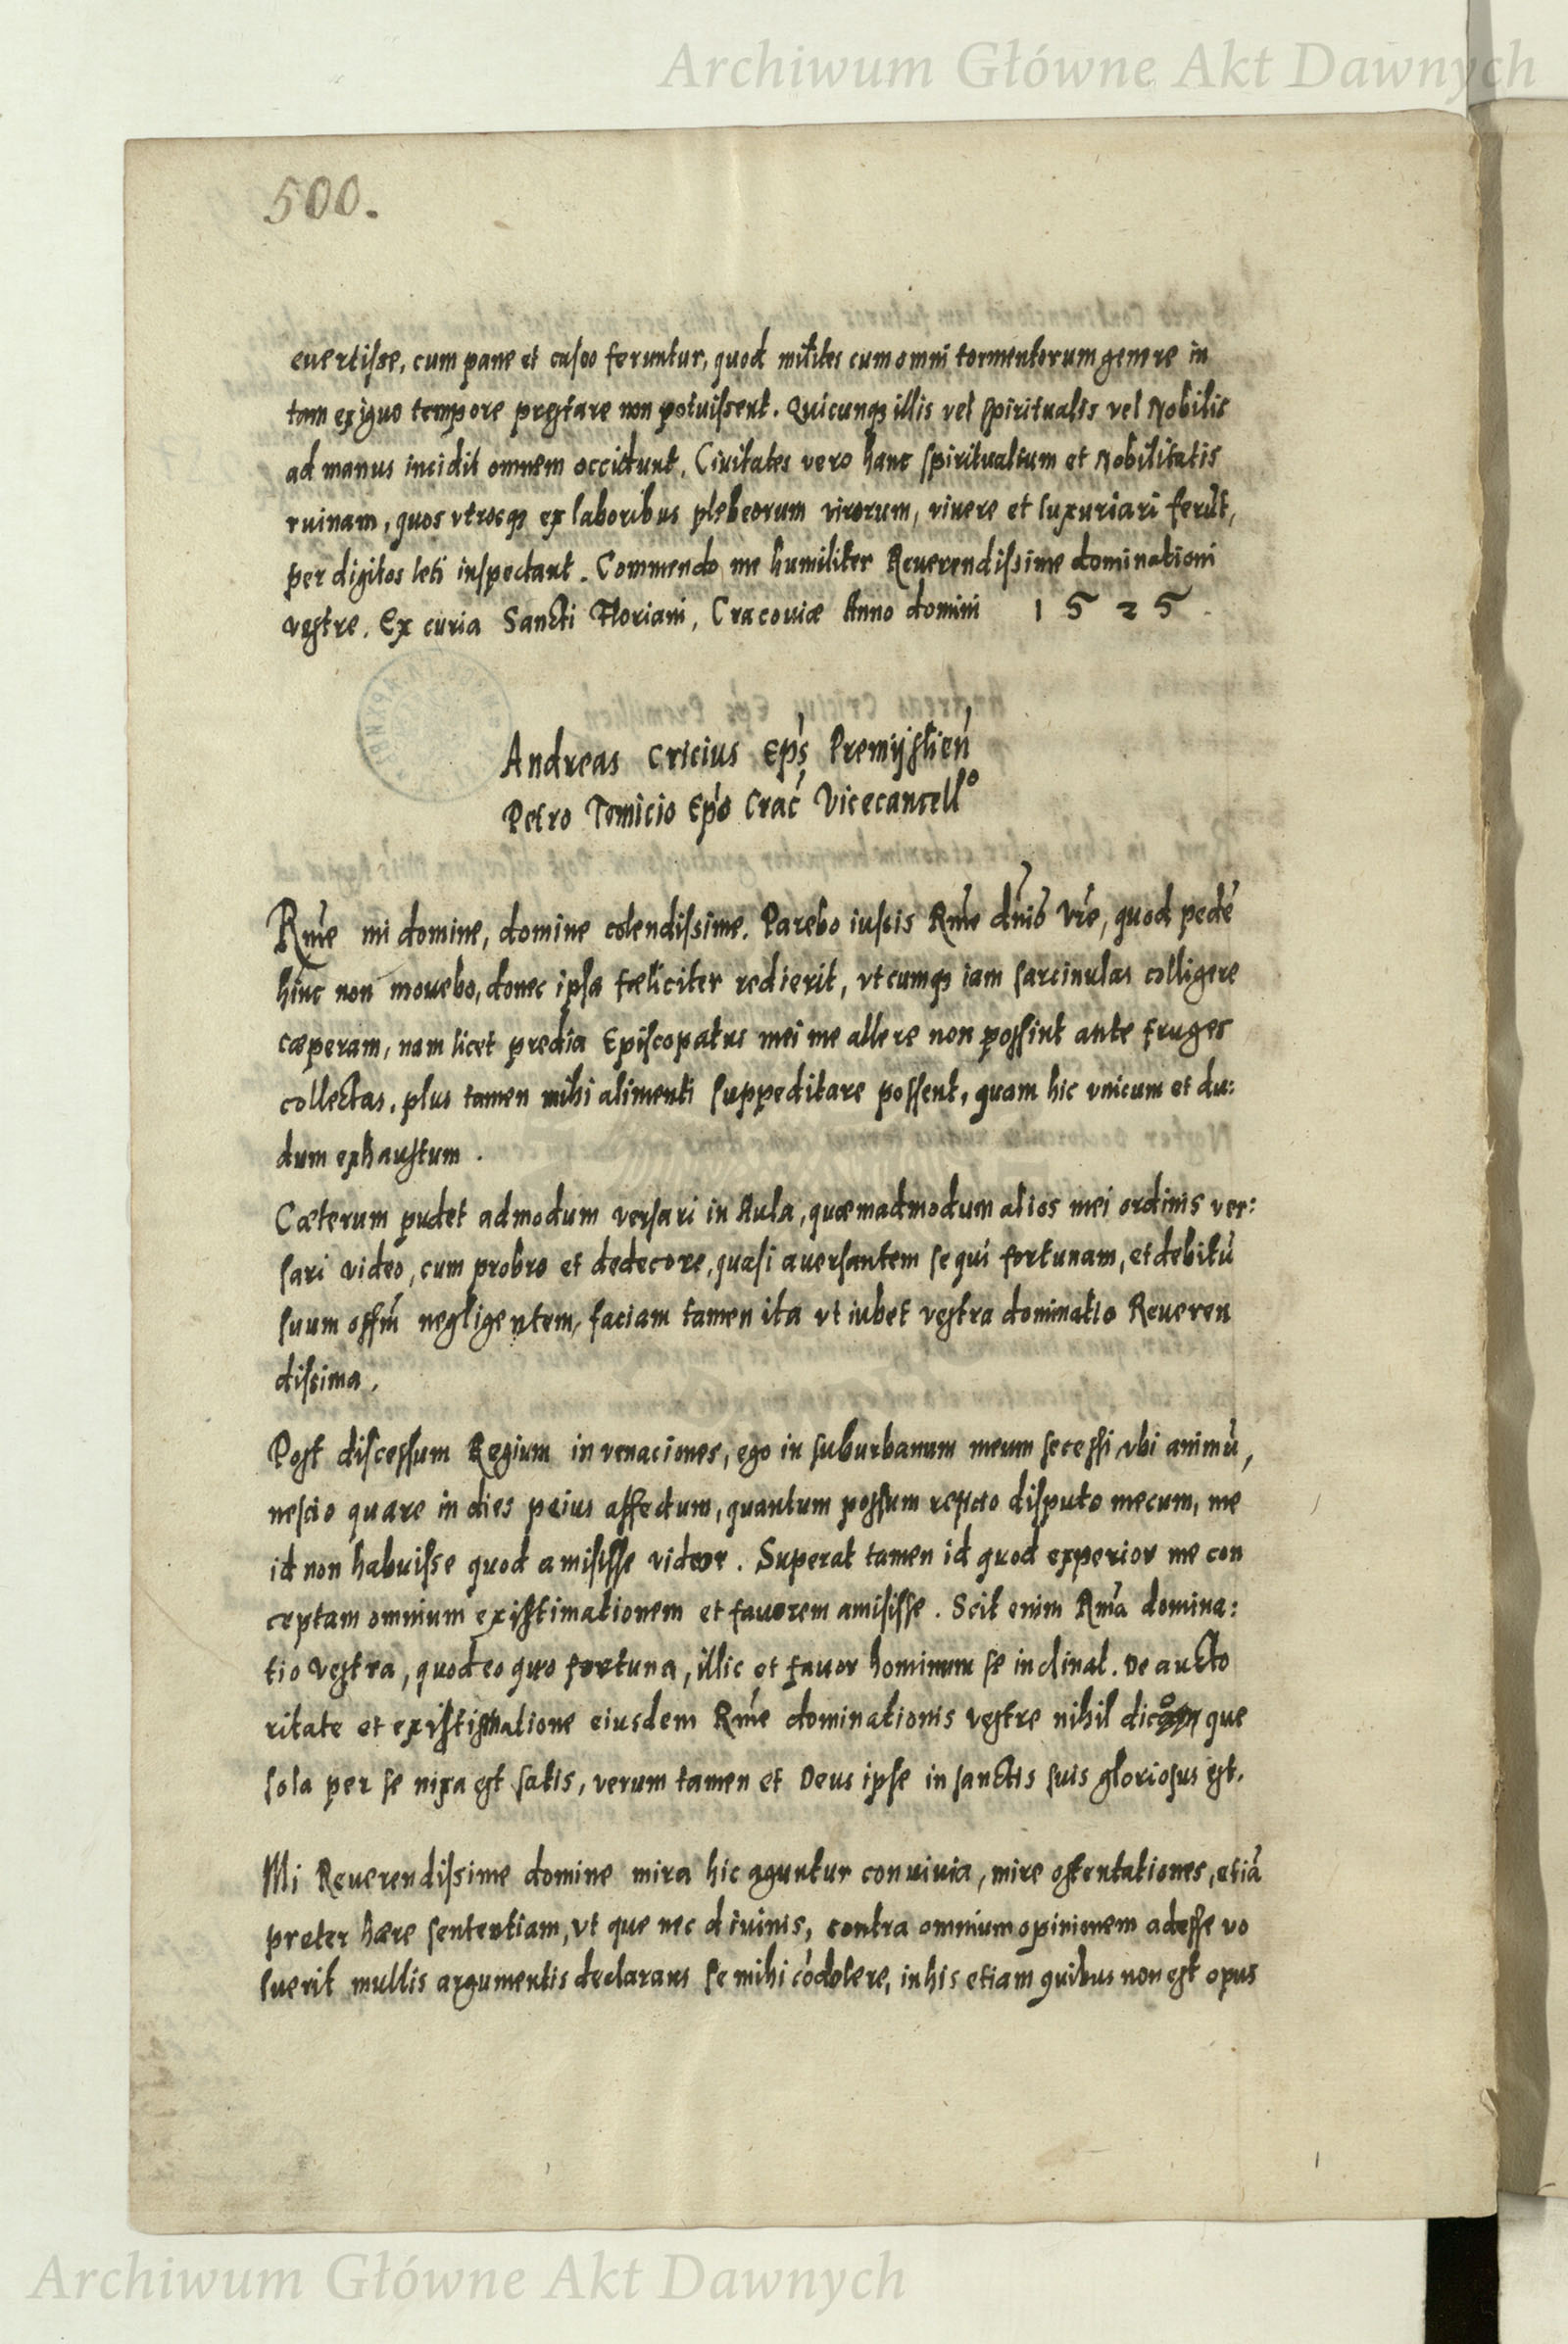 Archiwum Główne Akt Dawnych
500.
euertisse, cum pane et caseo feruntur, quod milites cum omni tormentorum genere in
tam exiguo tempore prestare non potuissent. Quicunqz illis vel spiritualis vel Nobilis
ad manus incidit omnem occidunt, Ciuitates vero hanc spiritualium et Nobilitatis
ruinam, quos vtrosqz ex laboribus plebeorum virorum, viuere et luxuriari ferūt,
per digitos leti inspectant. Commendo me humiliter Reuerendissime dominationi
vestre. Ex curia Sancti Floriani, Cracouiæ Anno domini 1525.
Andreas Cricius Ep̄s Premijslień
Petro Tomicio Ep̄o Crać Vicecancellº
Rm̄e mi domine, domine colendissime. Parebo iussis Rm̄e dn̄is Vr̄e, quod pedē
hinc non mouebo, donec ipsa fæliciter redierit, vtcumqz iam sarcinulas colligere
cæperam, nam licet predia Episcopatus mei me allere non possint ante fruges
collectas, plus tamen mihi alimenti suppeditare possent, quam hic vnicum et du:
dum exhaustum.
Cæterum pudet admodum versari in Aula, quæmadmodum alios mei ordinis ver:
sari video, cum probro et dedecore, quasi auersantem sequi fortunam, et debitū
suum offm̄ negligentem, faciam tamen ita vt iubet vestra dominatio Reueren
dissima.
Post discessum Regium in venaciones, ego in suburbanum meum secessi vbi animū,
nescio quare in dies peius affectum, quantum possum reficio disputo mecum, me
id non habuisse quod amisisse videor. Superat tamen id quod experior me con
ceptam omnium existimationem et fauorem amisisse. Scit enim Rm̄a domina:
tio vestra, quod eo quo fortuna, illic et fauor hominum se inclinat. De aucto
ritate et existimatione eiusdem Rm̄e dominationis vestre nihil dico que
sola per se nixa est satis, verum tamen et Deus ipse in sanctis suis gloriosus est.
Mi Reuerendissime domine mira hic aguntur conuiuia, mire ostentationes, etiā
preter hære sententiam, vt que nec diuinis, contra omnium opinionem adesse vo
luerit multis argumentis declarans se mihi cōdolere, in his etiam quibus non est opus
Archiwum Główne Akt Dawnych